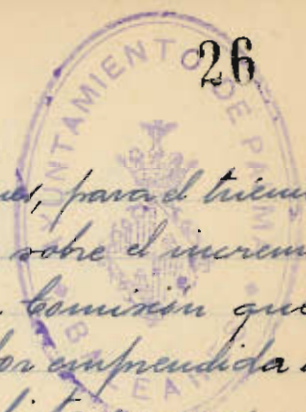 26
AYUNTAMIENTO DE PALMA
BALEARES
para el trienu
sobre el increm
Comisión que
emprendida